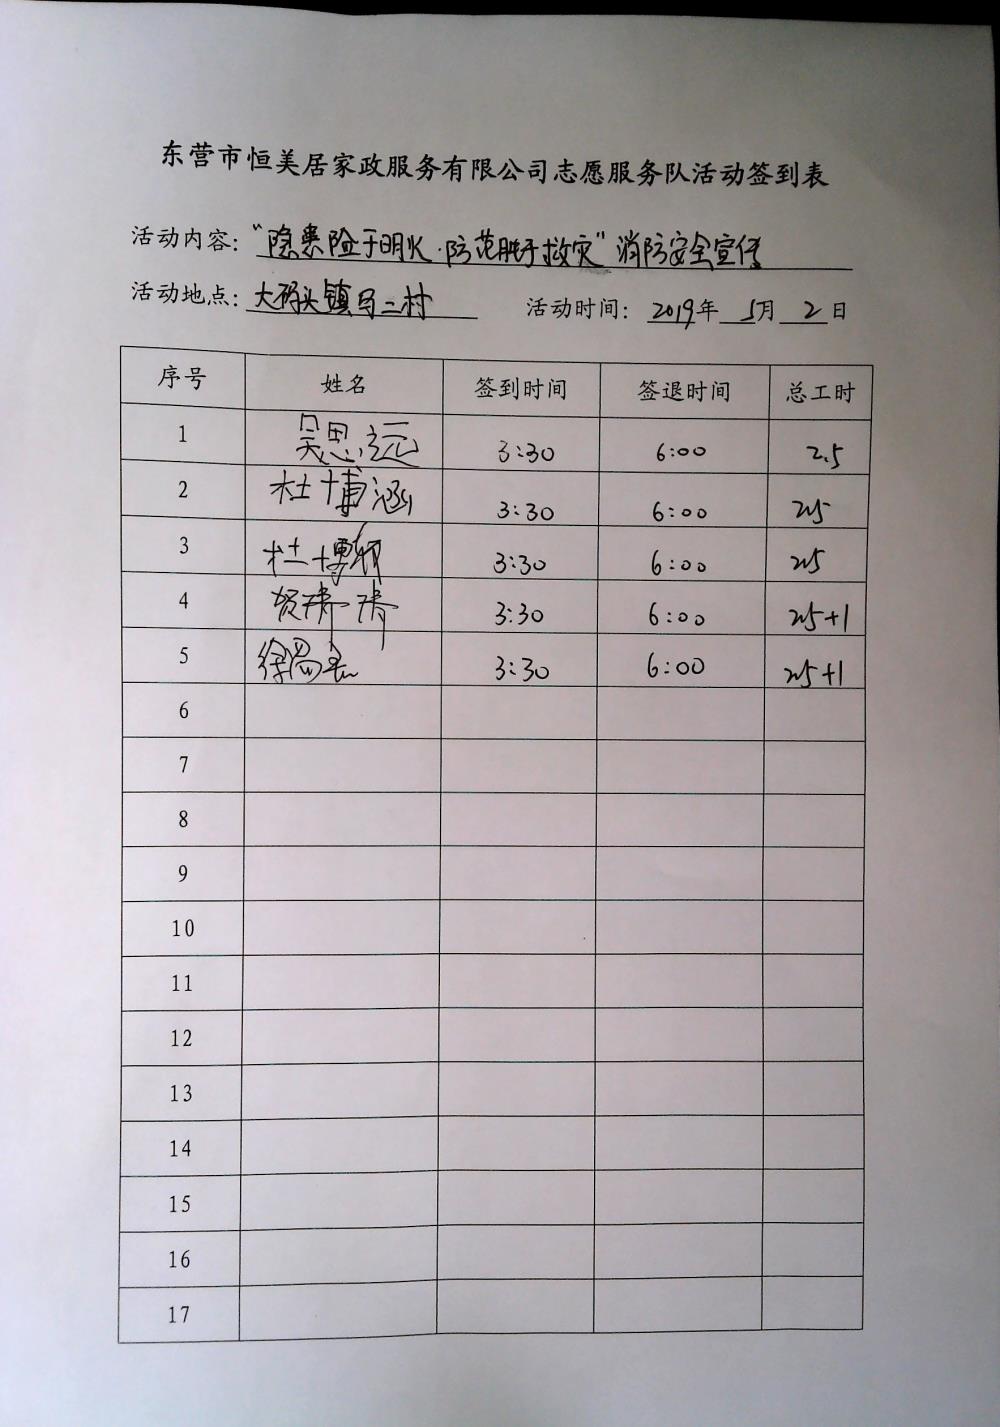 东营市恒美居家政服务有限公司志愿服务队活动签到表
活动内容：“隐患险于明火·防范胜于救灾”消防安全宣传
活动地点：大码头镇 二村 活动时间：2019年 5月 2日
序号 姓名 签到时间 签退时间 总工时
1 吴思远 3:30 6:00 2.5
2 杜博涵 3:30 6:00 2.5
3 杜博 3:30 6:00 2.5
4 贺 3:30 6:00 2.5+1
5 徐 3:30 6:00 2.5+1
6
7
8
9
10
11
12
13
14
15
16
17